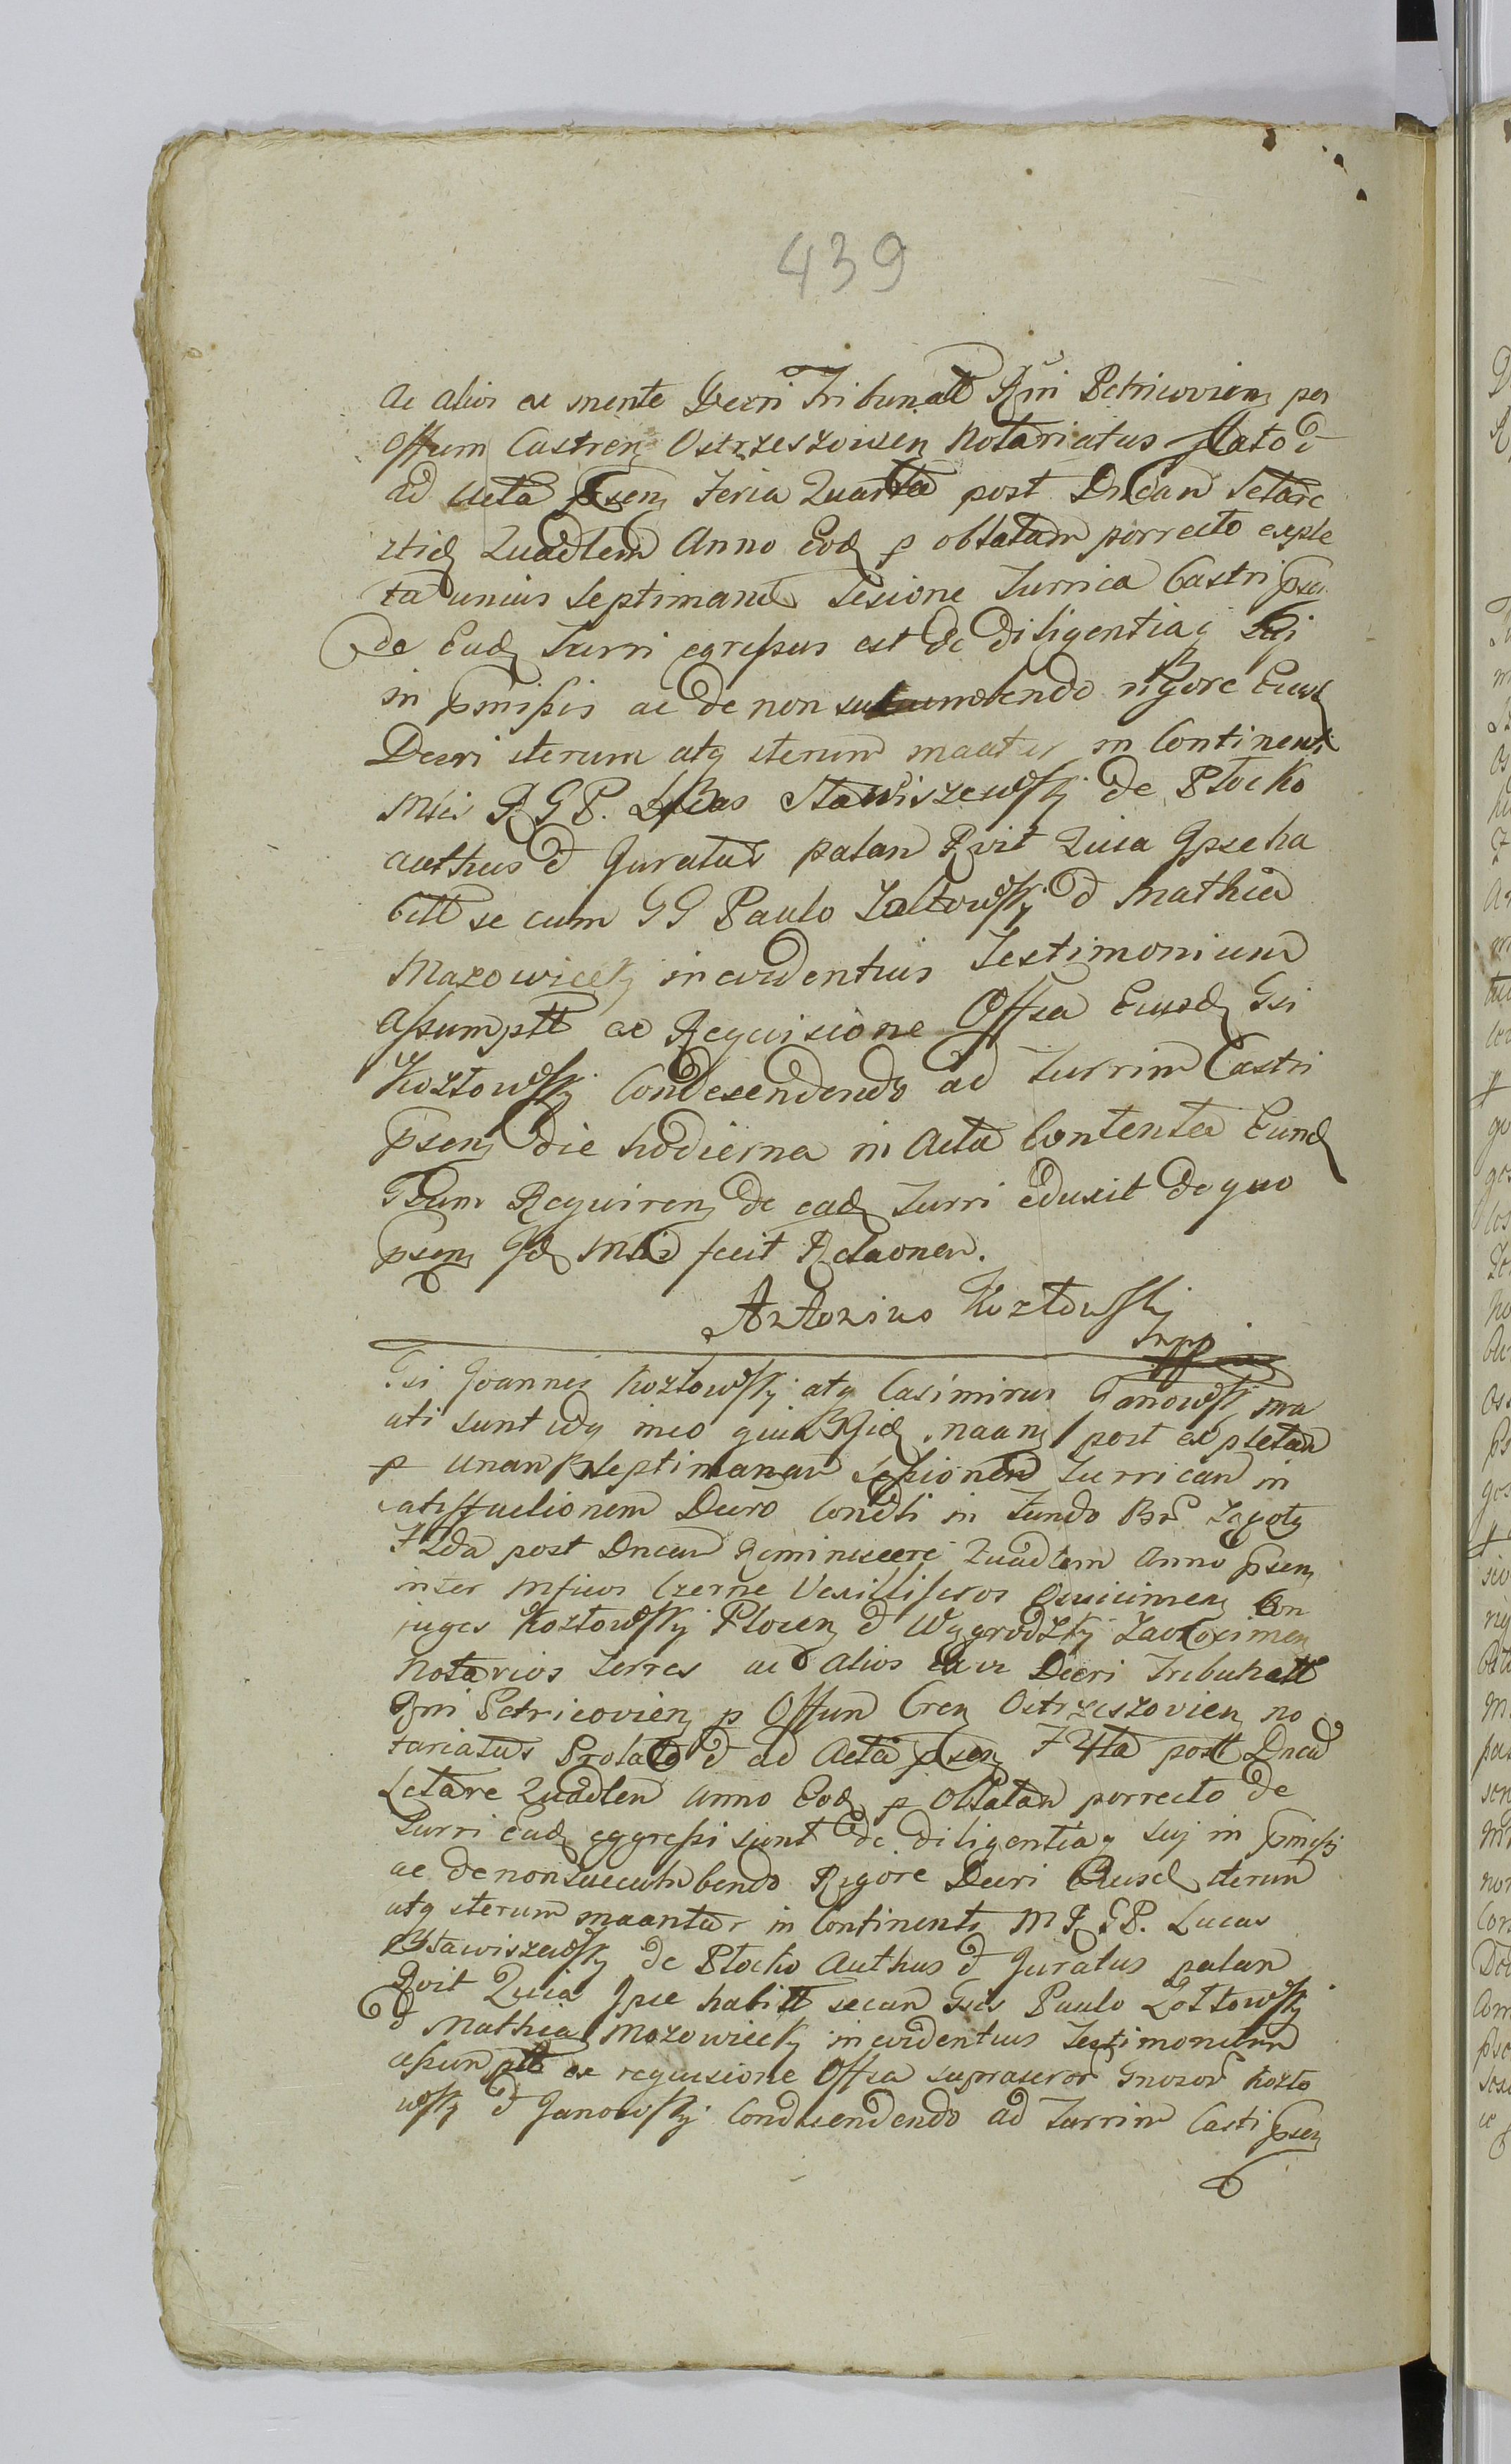 439
Ac alios ex mente Decri Tribunall Rgni Petricovien per
Offum Castren Ostrzeszovien Notariatus plato &
ad Acta psen Feria Quarta post Dnicam Letare
Quadlem Anno Eod p oblatam porrecto exple
ta unius Septimanae Sesione Turrica Castri psen
de Ead Turri egressus est de diligentiaq Sui
in pmissis ac de non succumbendo rigore Eiusd
Decri iterum atq iterum maatur in Continenti
Mlis R G P. Lucas Stawiszewsky de Plocko
authus & Juratus palam Rvit Quia Ipse ha
bitt se cum GG Paulo Zoltowsky & Mathia
Mazowiecky in evidentius Testimonium
assumptt ex Requisicione Offsa Eiusd Gsi
Kozłowsky Condescendendo ad Turrim Castri
psen die hodierna in Acta Contenta Eund
Gsum Requiren de ead Turri eduxit de quo
psen Id Mlis fecit Relaonem.
Antonius Kozłowsky
Gsi Joannes Kozłowsky atq Casimirus Janowsky ma
ati sunt idq in eo quia maan post expletam
p unam Septimanam Sessionem Turricam in
satisffactionem Decro Condti in Fundo Bnr
F 2da post Dncam Reminiscere Quadlem Anno psen
inter Mficos Czerne Vexilliferos Oswiecimen Con
juges Kozłowsky Plocen & Wygrodzky Zawkrzimen
Notarios Terres ac alios Decri Tribunall
Rgni Petricovien p Offum Cren Ostrzeszovien no
tariatus Prolato & ad Acta psen F 4ta post Dncam
Letare Quadlem Anno Eod p Oblatam porrecto de
Turri ead eggressi sunt de diligentiaq sui in pmissis
ac de non succumbendo Rigore Decri Eiusd iterum
atq iterum maantur in Continenti M R G P. Lucas
Stawiszewsky de Plocko Authus & Juratus palam
Rvit Quia Ipse habitt secum Gsis Paulo Zoltowsky
& Mathia Mazowiecky in evidentius Testimonium
assumptt ex requisicione Offsa suprascror Gnosor Kozło
wsky & Janowsky Condescendendo ad Turrim Casti psen